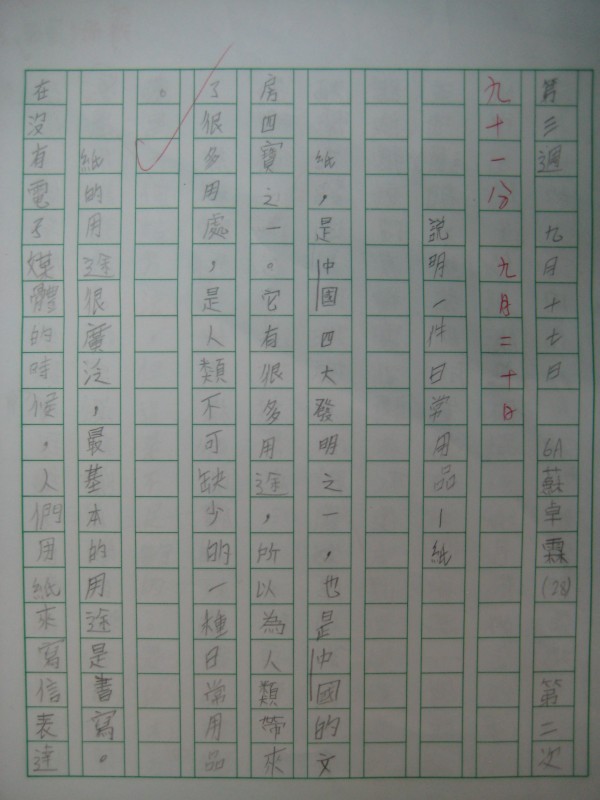 第三週 九月十七日 6A蘇卓霖(28) 第二次
九十一分 九月二十日
說明一件日常用品—紙
紙，是中國四大發明之一，也是中國的文
房四寶之一。它有很多用途，所以為人類帶來
了很多用處，是人類不可缺少的一種日常用品
。
紙的用途很廣泛，最基本的用途是書寫。
在沒有電子媒體的時候，人們用紙來寫信表達